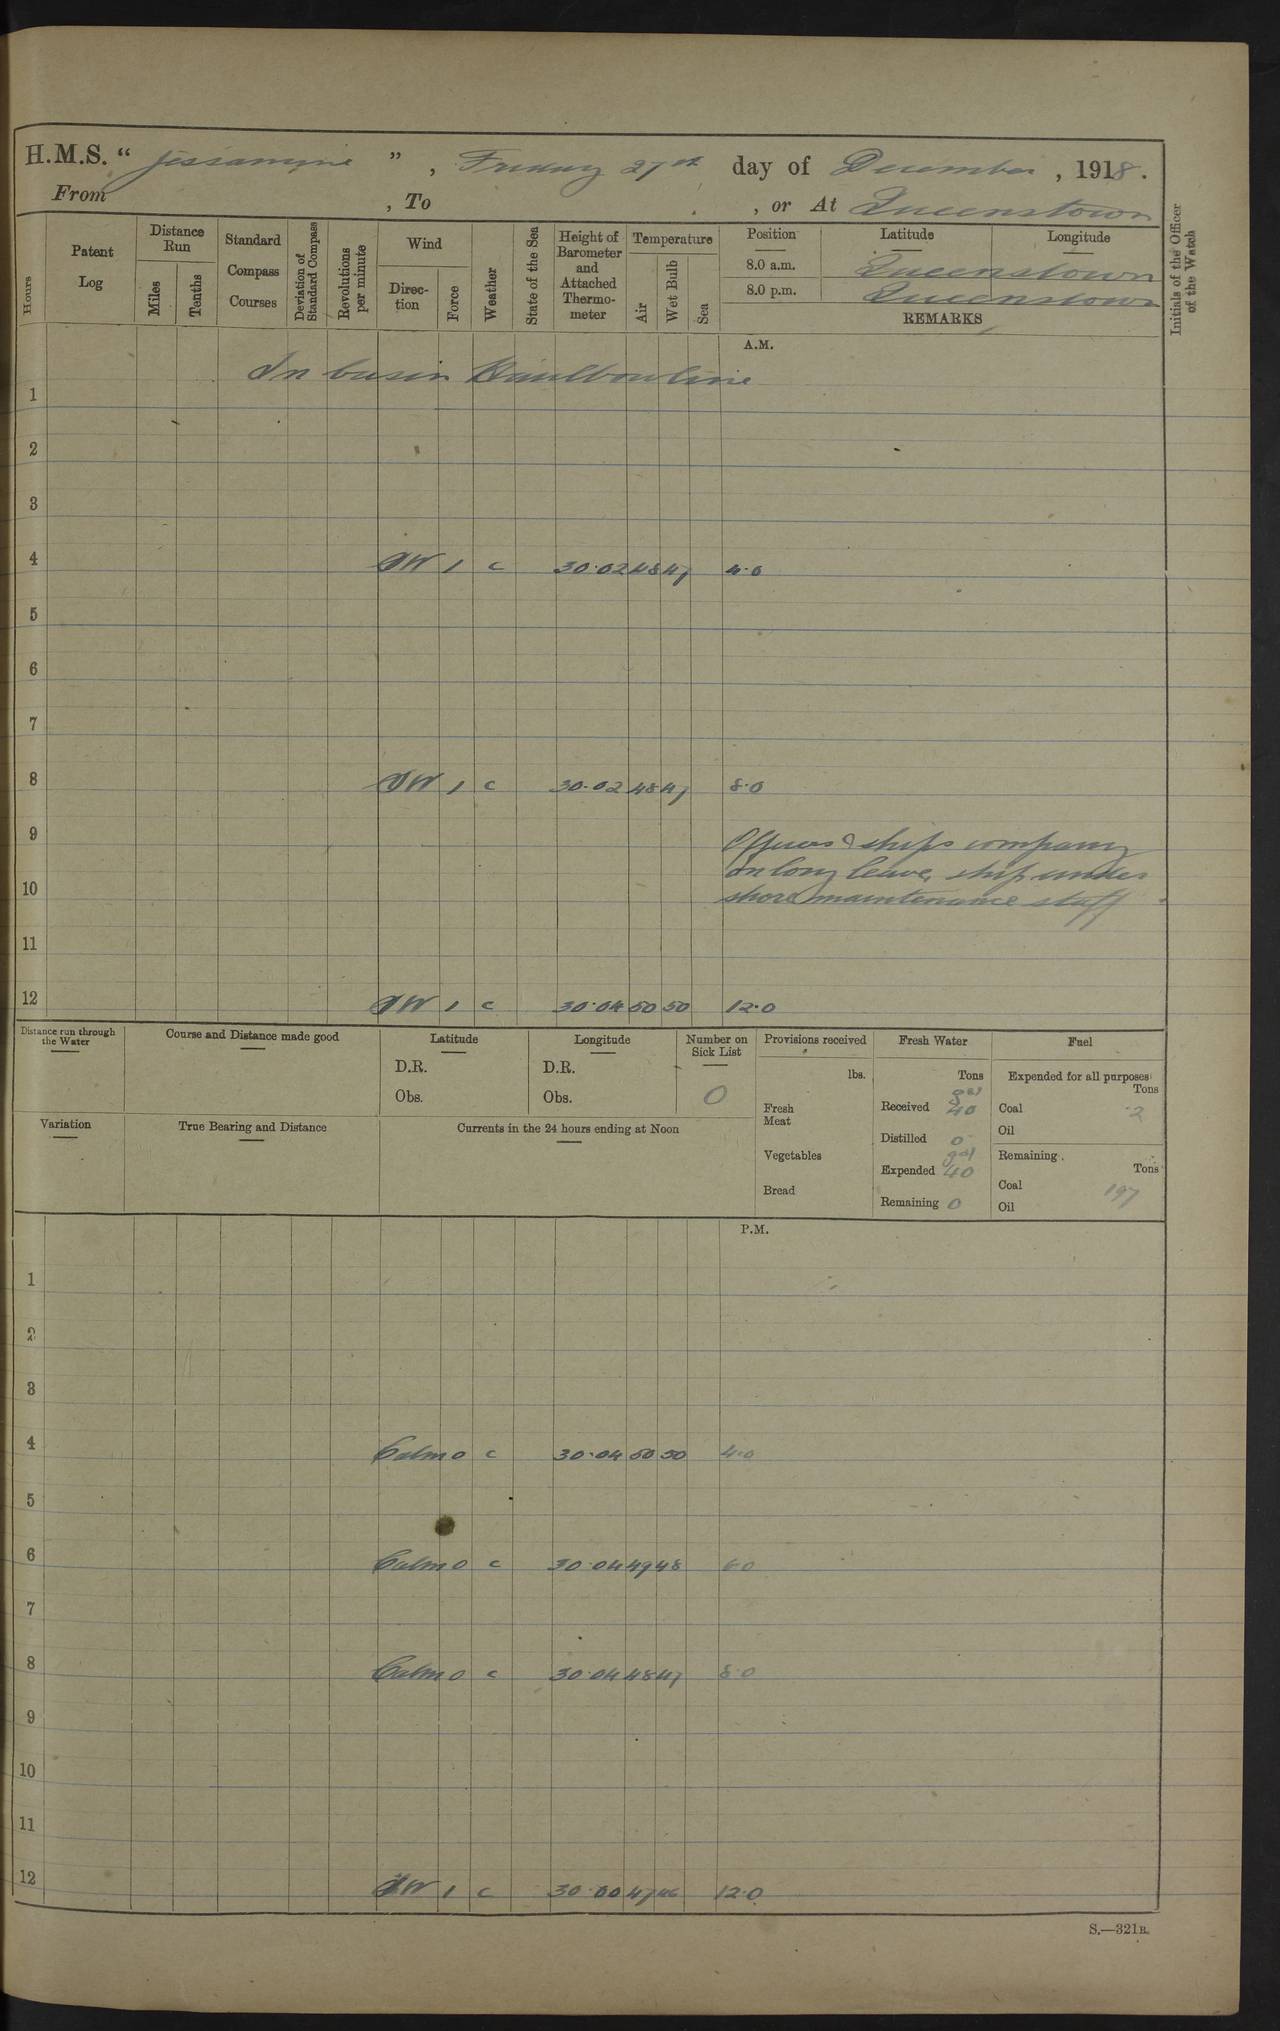 H.M.S. " Jessamine ", Friday 27th day of December, 1918.
From , To , or At Queenstown
Hours
Patent Log
Distance Run
Miles
Tenths
Standard Compass Courses
Deviation of Standard Compass
Revolutions per minute
Wind
Direction
Force
Weather
State of the Sea
Height of Barometer and Attached Thermometer
Temperature
Air
Wet Bulb
Sea
Position
Latitude
Longitude
8.0 a.m. Queenstown
8.0 p.m. Queenstown
REMARKS
Initials of the Officer of the Watch
A.M.
In basin Haulbowline
1
2
3
4 SW 1 c 30.02 48 47 4.0
5
6
7
8 SW 1 c 30.02 48 47 8.0
9 Officers & ships company
on long leave, ship under
10 shore maintenance staff
11
12 SW 1 c 30.04 50 50 12.0
Distance run through the Water
Course and Distance made good
Latitude
D.R.
Obs.
Longitude
D.R.
Obs.
Number on Sick List
0
Provisions received
lbs.
Fresh Meat
Vegetables
Bread
Fresh Water
Tons
gal
Received 40
Distilled 0
gal
Expended 40
Remaining 0
Fuel
Expended for all purposes
Tons
Coal 2
Oil
Remaining
Tons
Coal 197
Oil
Variation
True Bearing and Distance
Currents in the 24 hours ending at Noon
P.M.
1
2
3
4 Calm 0 c 30.04 50 50 4.0
5
6 Calm 0 c 30.04 49 48 6.0
7
8 Calm 0 c 30.04 48 47 8.0
9
10
11
12 SW 1 c 30.00 47 46 12.0
S.—321B.